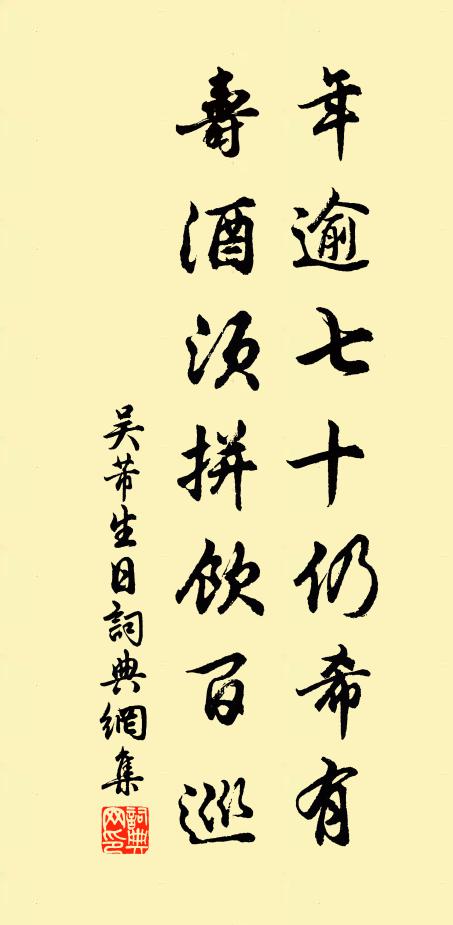 年逾七十仍希有
壽酒须拼飲百巡
吴芾生日詞典網集
詞典网印